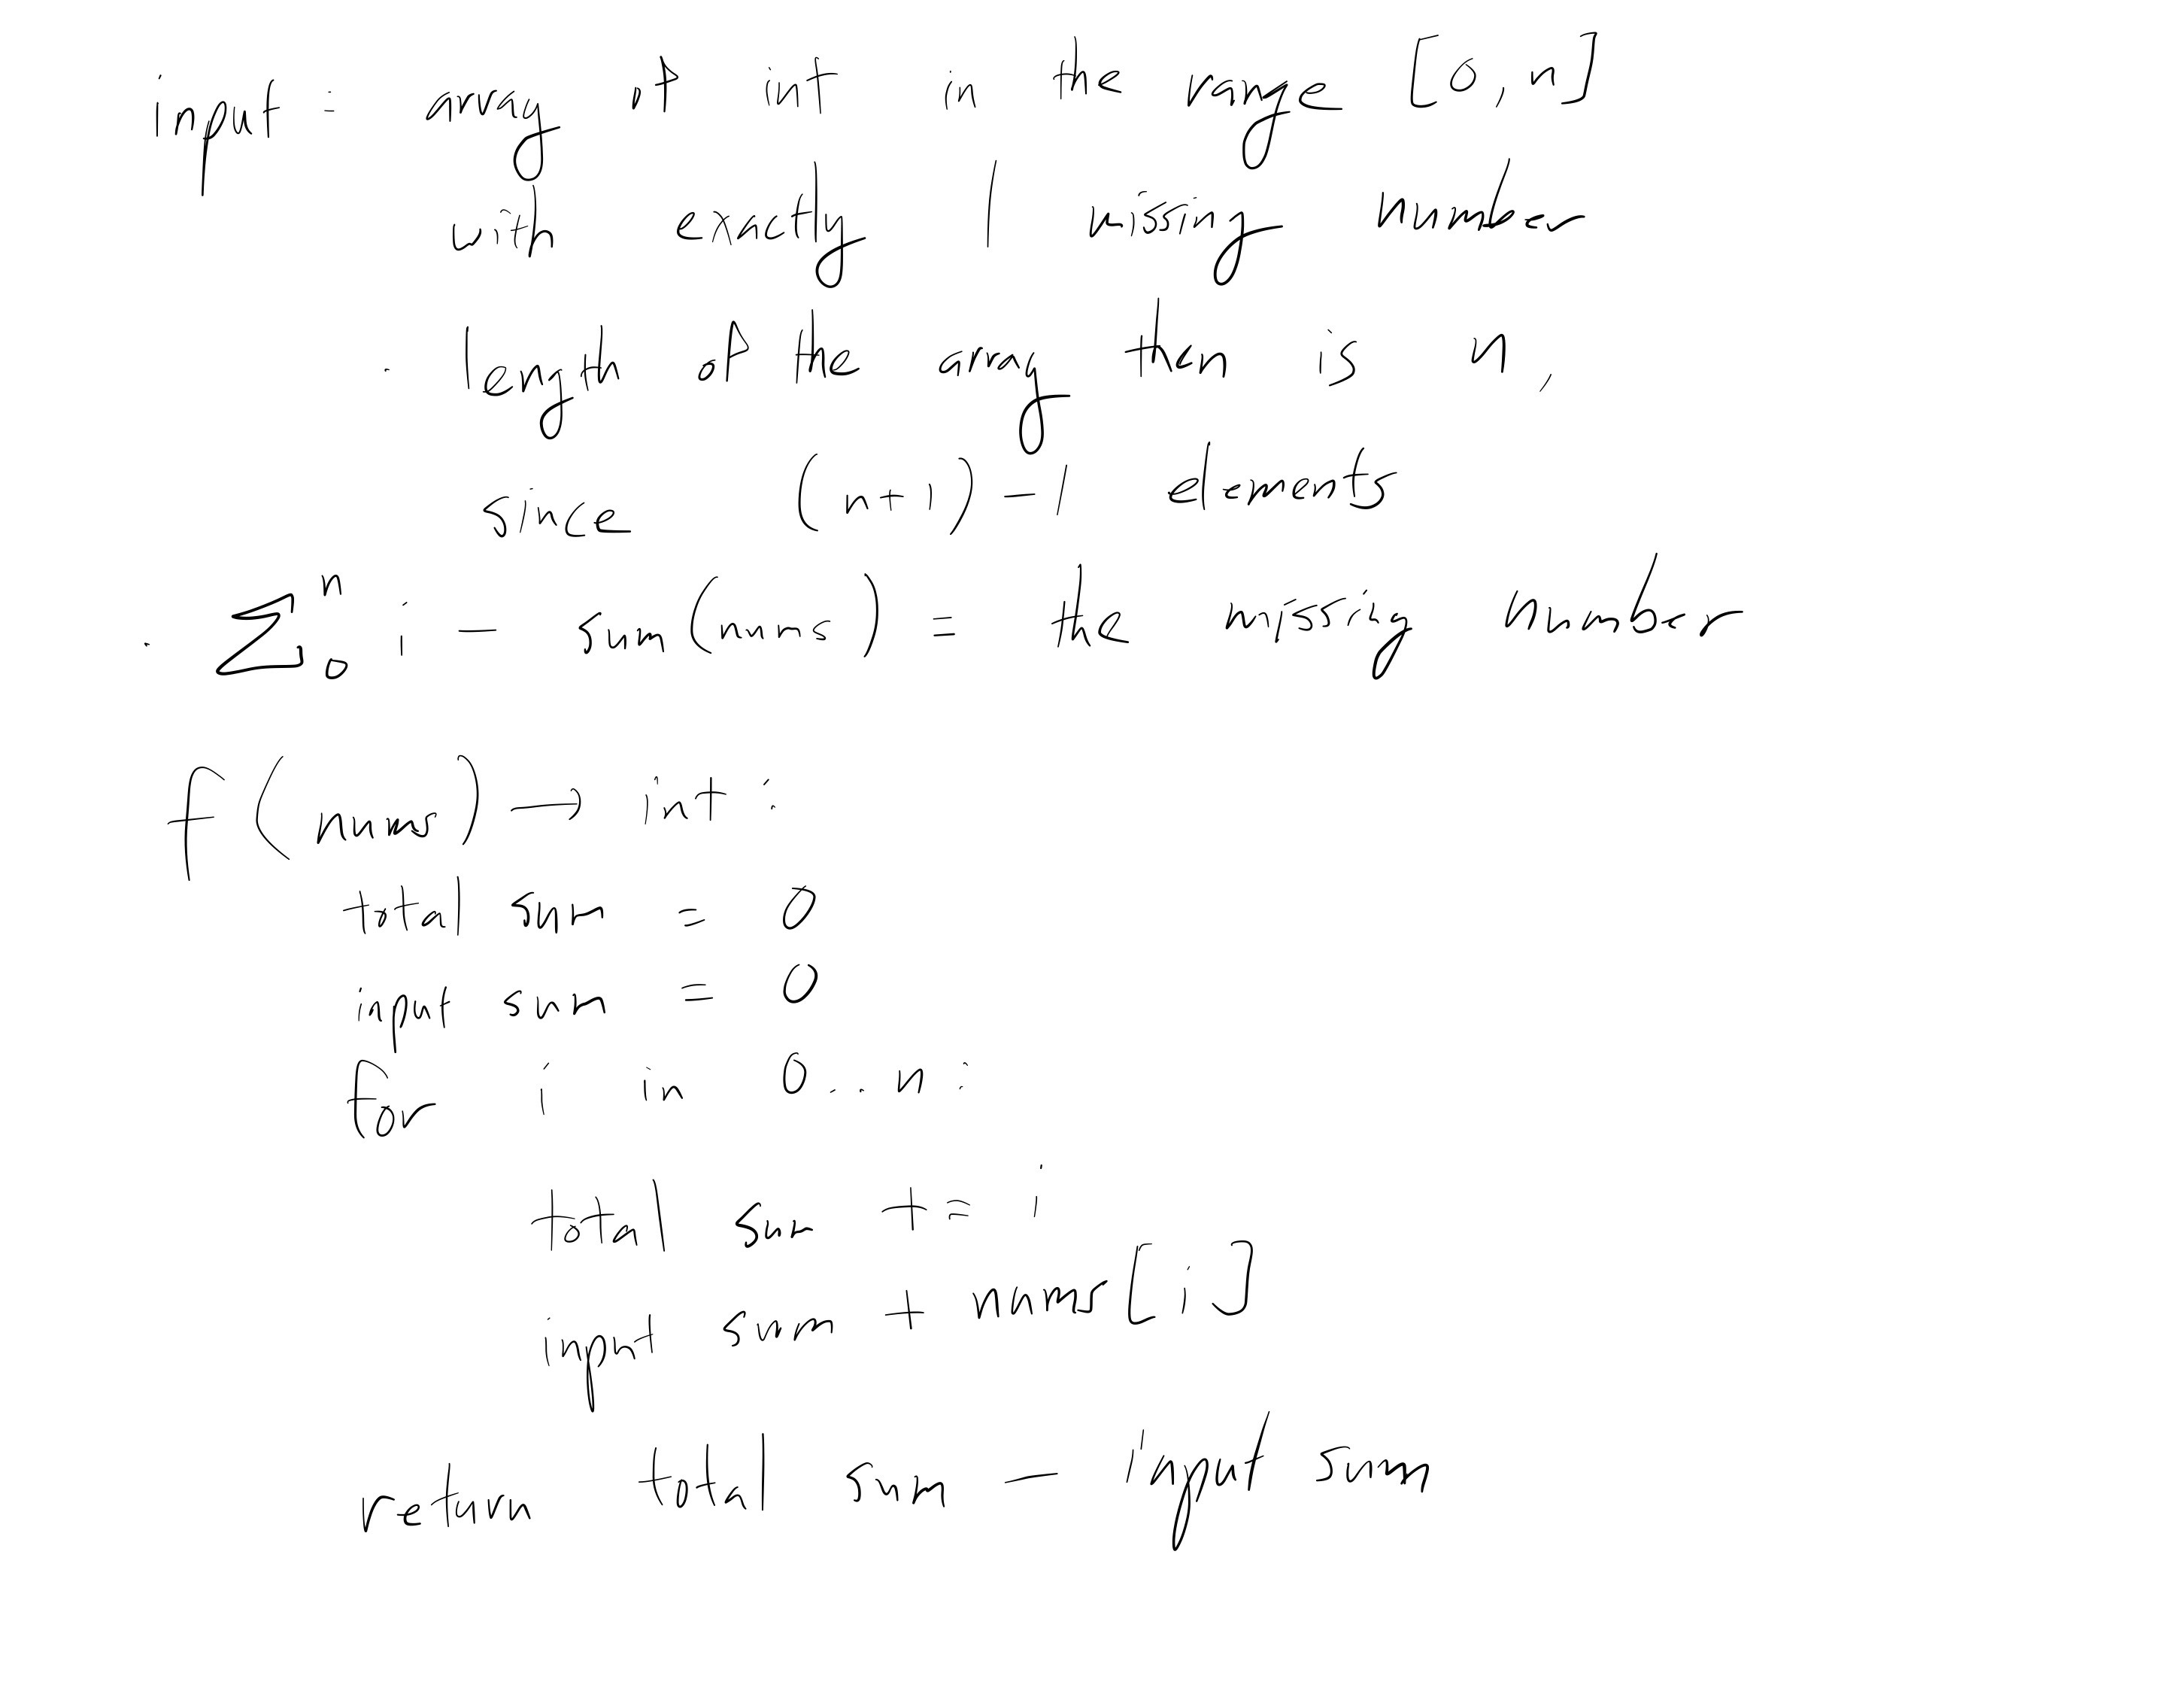 input : array of int in the range [0, n]
with exactly 1 missing number
· length of the array then is n,
since (n+1) - 1 elements
· ∑ⁿ₀ i - sum(nums) = the missing number
f(nums) → int :
total sum = 0
input sum = 0
for i in 0..n :
total sum += i
input sum + nums[i]
return total sum - input sum